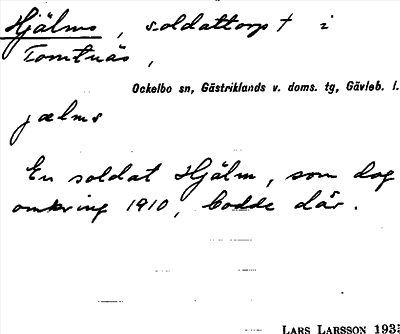 Hjälms, soldattorp † i
Tomtnäs,
Ockelbo sn, Gästriklands v. doms. tg, Gävleb. l.
jælms
En soldat Hjälm, som dog
omkring 1910, bodde där.
LARS LARSSON 1935